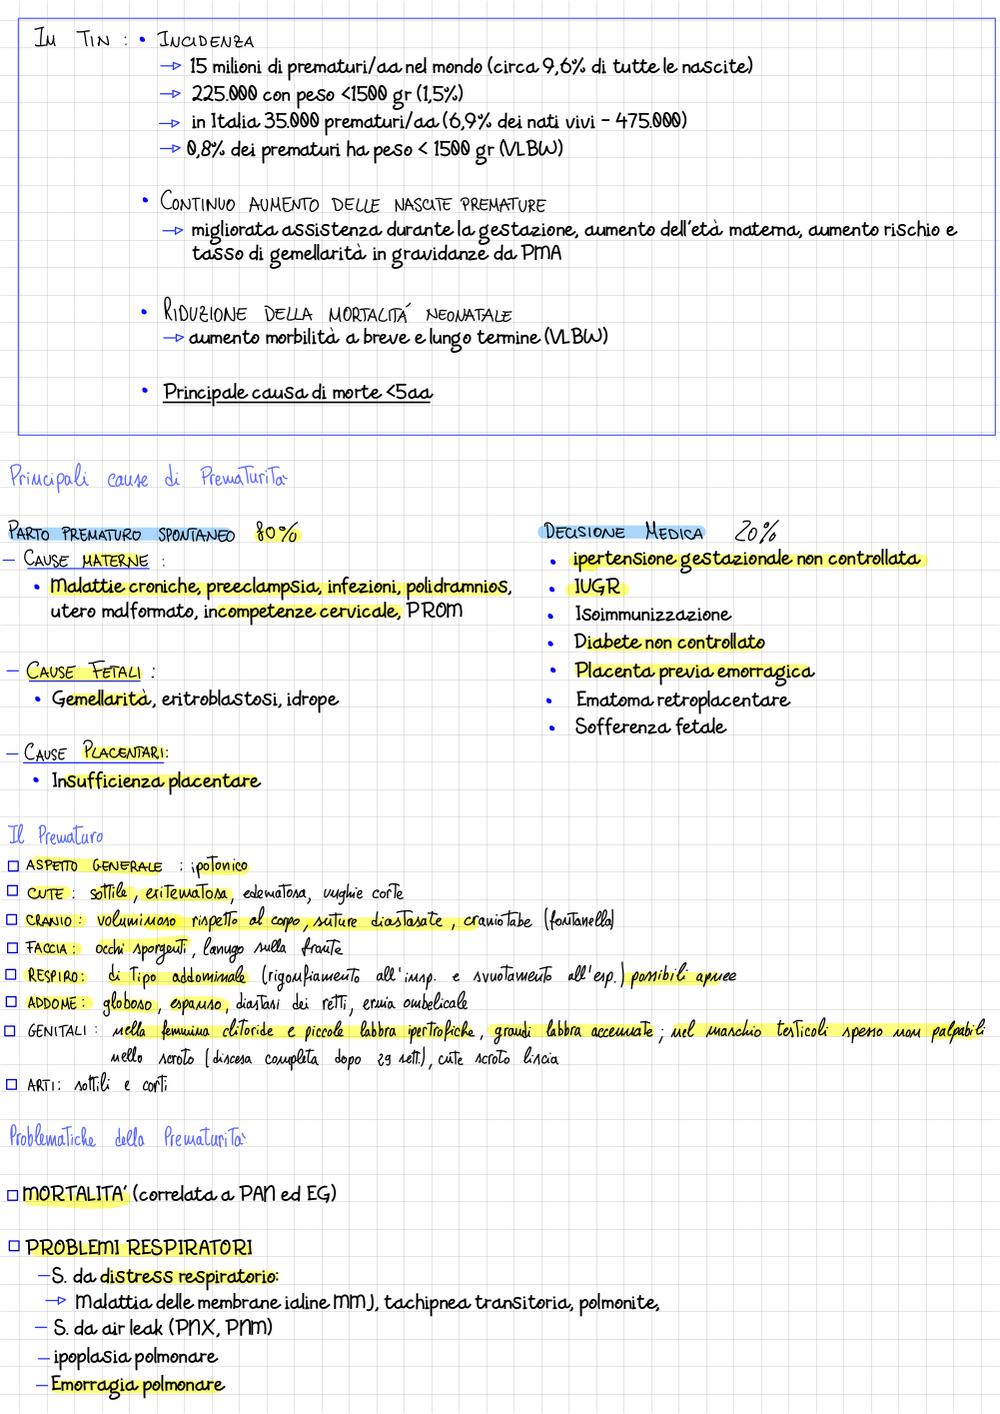 In TIN : • INCIDENZA
→ 15 milioni di prematuri/aa nel mondo (circa 9,6% di tutte le nascite)
→ 225.000 con peso <1500 gr (1,5%)
→ in Italia 35.000 prematuri/aa (6,9% dei nati vivi - 475.000)
→ 0,8% dei prematuri ha peso < 1500 gr (VLBW)
• CONTINUO AUMENTO DELLE NASCITE PREMATURE
→ migliorata assistenza durante la gestazione, aumento dell'età materna, aumento rischio e
tasso di gemellarità in gravidanze da PMA
• RIDUZIONE DELLA MORTALITÁ NEONATALE
→ aumento morbilità a breve e lungo termine (VLBW)
• Principale causa di morte <5aa
Principali cause di Prematurità
PARTO PREMATURO SPONTANEO 80%
- CAUSE MATERNE :
• Malattie croniche, preeclampsia, infezioni, polidramnios,
utero malformato, incompetenze cervicale, PROM
- CAUSE FETALI :
• Gemellarità, eritroblastosi, idrope
- CAUSE PLACENTARI:
• Insufficienza placentare
DECISIONE MEDICA 20%
• ipertensione gestazionale non controllata
• IUGR
• Isoimmunizzazione
• Diabete non controllato
• Placenta previa emorragica
• Ematoma retroplacentare
• Sofferenza fetale
Il Prematuro
□ ASPETTO GENERALE : ipotonico
□ CUTE : sottile, eritematosa, edematosa, unghie corte
□ CRANIO : voluminoso rispetto al corpo, suture diastasate, craniotabe (fontanella)
□ FACCIA : occhi sporgenti, lanugo sulla fronte
□ RESPIRO: di tipo addominale (rigonfiamento all'insp. e svuotamento all'esp.) possibili apnee
□ ADDOME : globoso, espanso, diastasi dei retti, ernia ombelicale
□ GENITALI : nella femmina clitoride e piccole labbra ipertrofiche, grandi labbra accennate ; nel maschio testicoli spesso non palpabili
nello scroto (discesa completa dopo 29 sett.), cute scroto liscia
□ ARTI : sottili e corti
Problematiche della Prematurità
□ MORTALITA' (correlata a PAN ed EG)
□ PROBLEMI RESPIRATORI
- S. da distress respiratorio:
→ Malattia delle membrane ialine MMJ, tachipnea transitoria, polmonite,
- S. da air leak (PNX, PNM)
- ipoplasia polmonare
- Emorragia polmonare